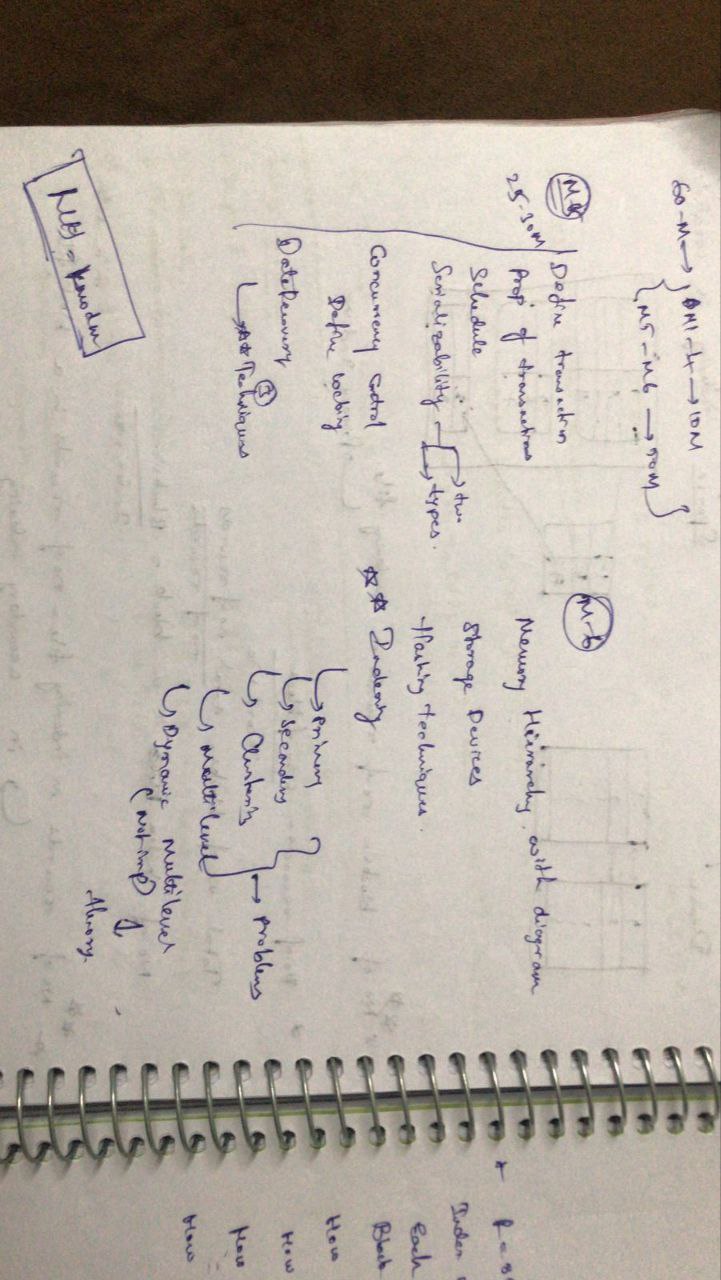 60-M → M1-4 → 10M
M5-M6 → 50M
M5
25-30M
Define transaction
Prop of transactions
Schedule
Serializability → two
→ types.
Concurrency Control
Define locking
Data Recovery
→ ☆☆ Techniques ③
M-6
Memory Hierarchy with diagram
Storage Devices
Hashing techniques.
☆☆ Indexing
→ Primary
→ Secondary
→ Clustering
→ Multilevel
→ problems
→ Dynamic Multilevel
(Not imp)
↓
theory.
Index
Each
Block
How
How
How
How